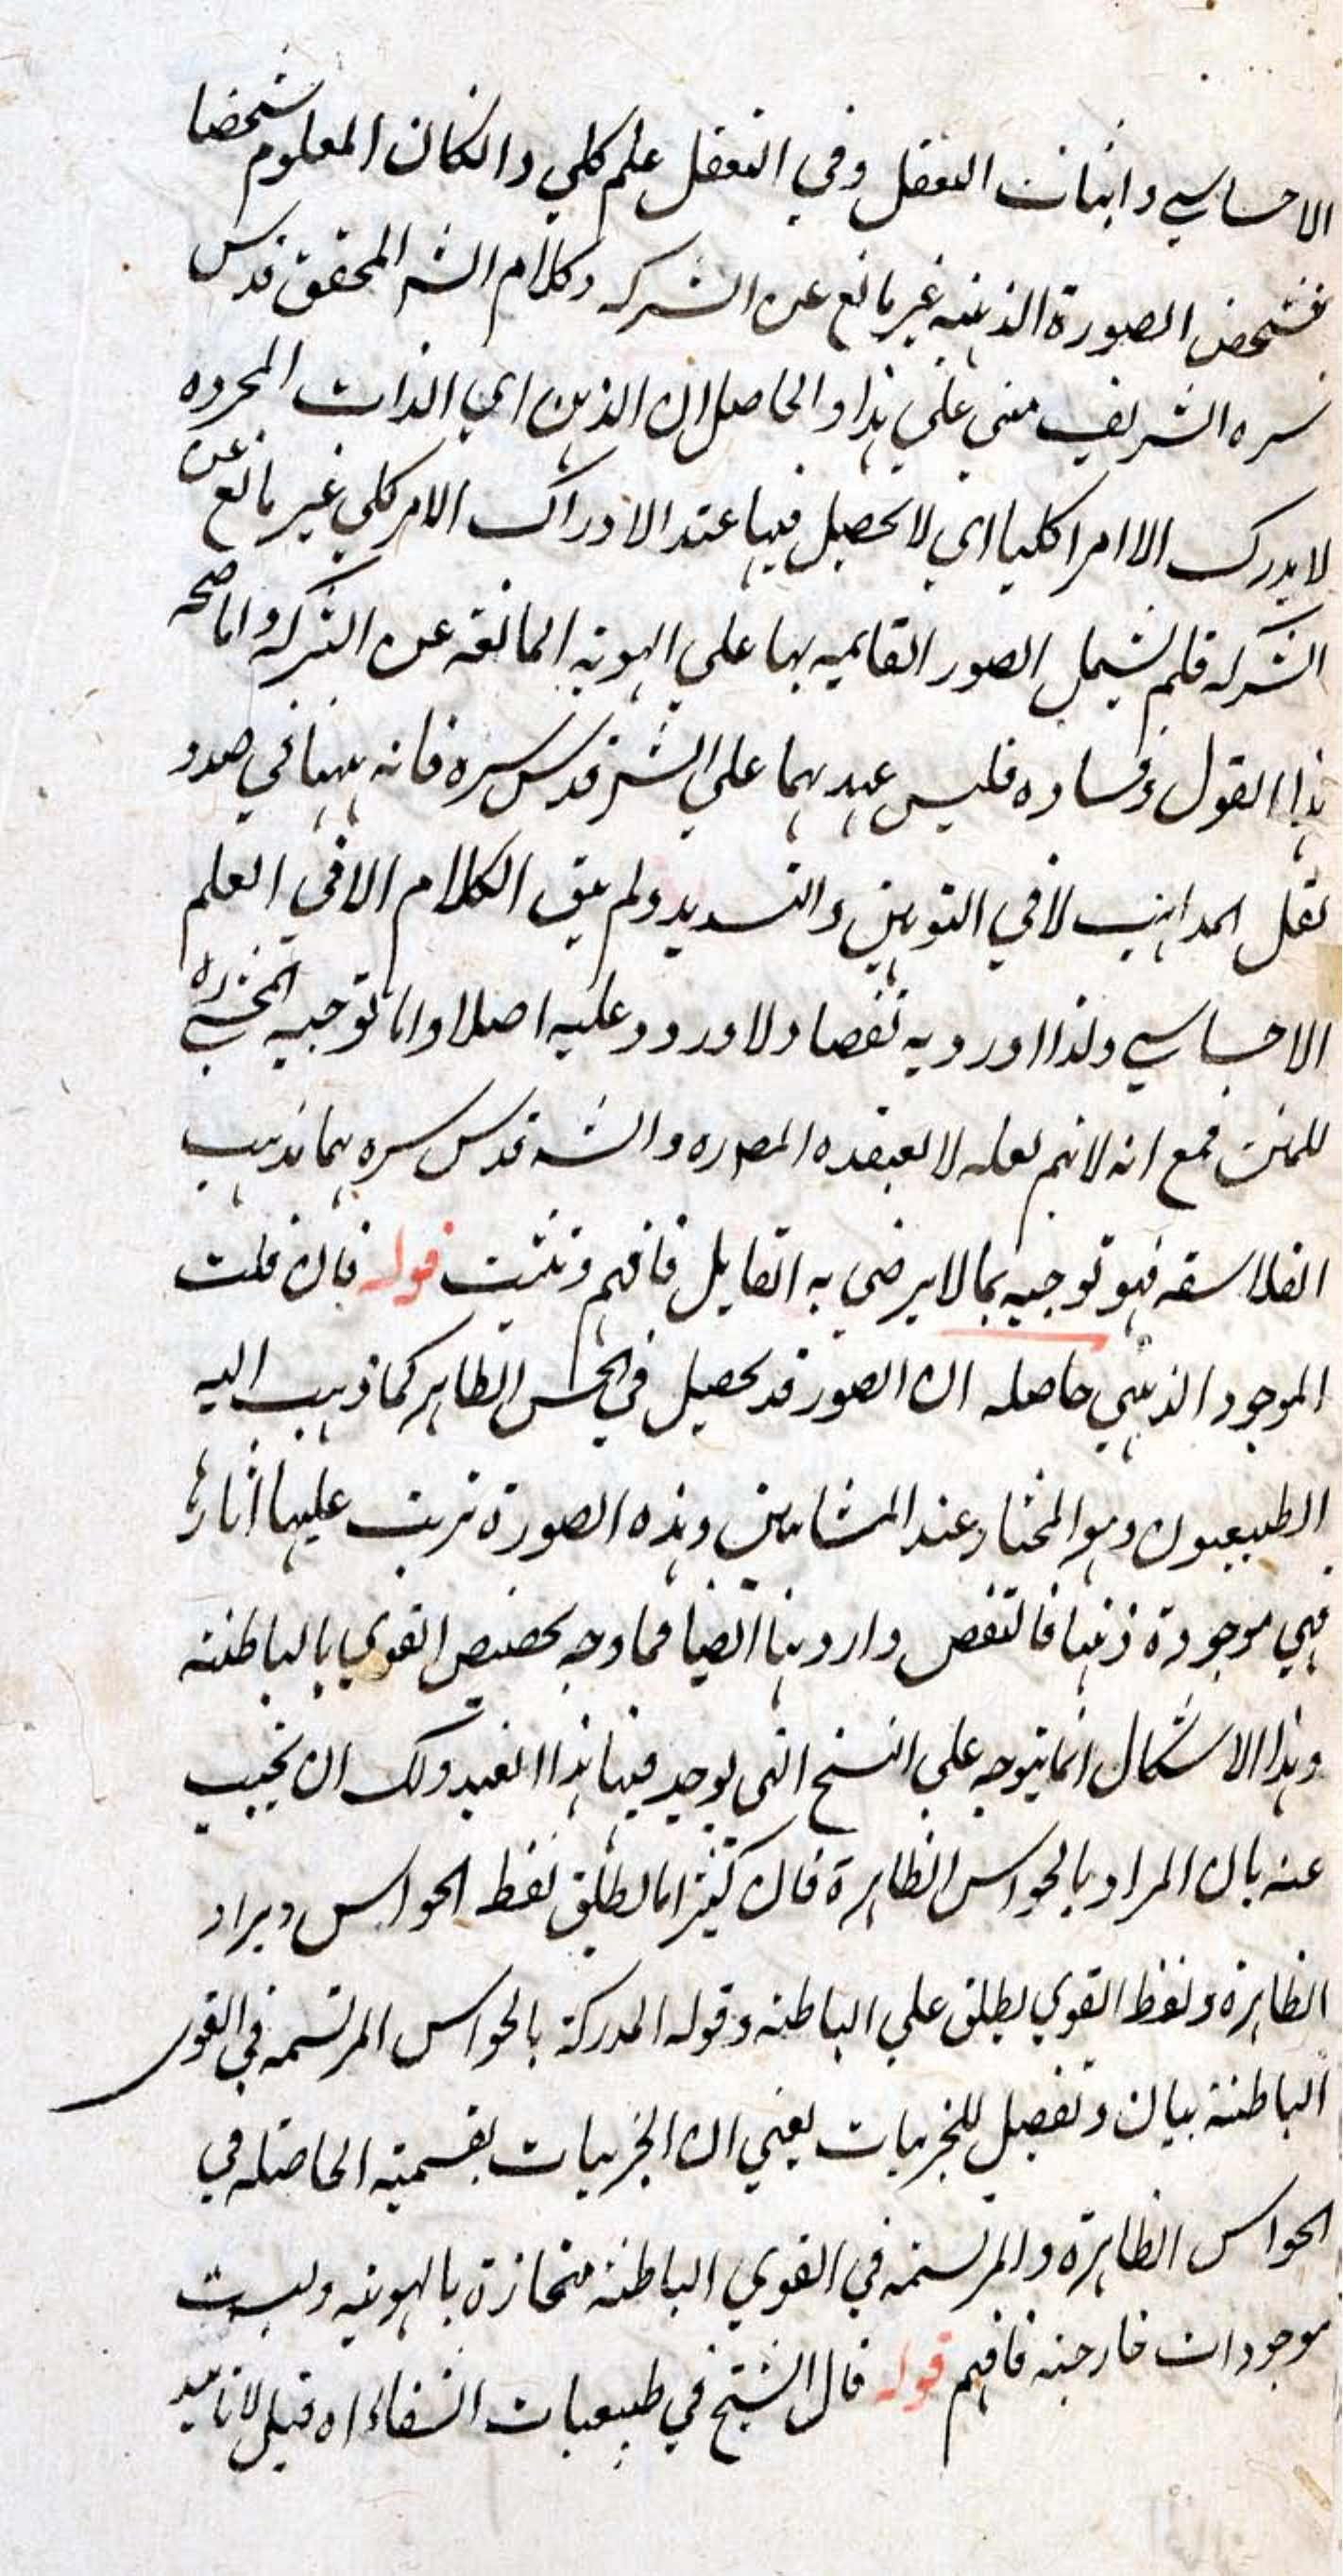 الاحساسي واثبات التعقل وفي التعقل علم كلي وانكان المعلوم شخصا
فتشخص الصورة الذهنيه غير مانع عن الشركه وكلام الشر المحقق قدس
سره الشريف مبني علي هذا والحاصل ان الذهن اي الذات المجرده
لا يدرك الا امرا كليا اي لا تحصيل فيها عند الادراك الا مر كلي غير مانع عن
الشركه فلم يشمل الصور القايمه بها علي الهويه المانعه عن الشركه واما صحه
هذا القول وفساده فليس عهدهما علي الشر قدس سره فانه ههنا في صدد
نقل المذاهب لا في التوهين والتسديد ولم يبق الكلام الا في العلم
الاحساسي ولذا اورد به نقضا ولا ورود عليه اصلا واما توجيه المحشي ره
للمتن فمع انه لا يتم لعله لا يعتقده المص ره والشر قدس سره بمذهب
الفلاسفه فهو توجيه بما لا يرضي به القايل فافهم وتثبت قوله فان قلت
الموجود الذهني حاصله ان الصور قد تحصل في الحس الظاهر كما ذهب اليه
الطبيعيون وهو المختار عند المشائين وهذه الصورة ترتب عليها آثارها
فهي موجودة ذهنا فالنقض وارد هنا ايضا فما وجه تخصيص القوي بالباطنه
وهذا الاشكال انما يتوجه علي النسخ التي يوجد فيها هذا القيد ولك ان تجيب
عنه بان المراد بالحواس الظاهرة فان كثيرا ما يطلق لفظ الحواس ويراد
الظاهرة ولفظ القوي يطلق علي الباطنه وقوله المدركة بالحواس المرتسمه في القوى
الباطنة بيان وتفصيل للجزييات يعني ان الجزييات بقسميه الحاصله في
الحواس الظاهرة والمرتسمه في القوي الباطنه منحازة بالهويه وليست
موجودات خارجيه فافهم قوله قال الشيخ في طبيعيات الشفاء اه قيل لا تاييد